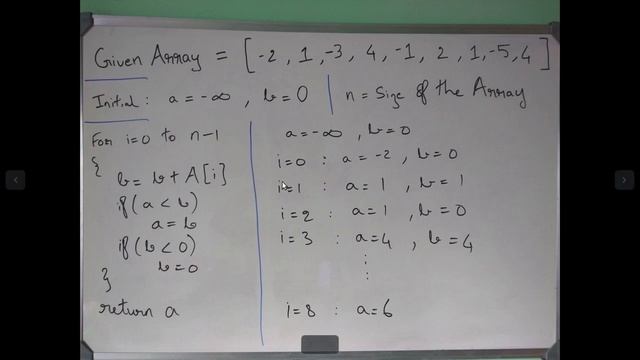 Given Array = [ -2, 1, -3, 4, -1, 2, 1, -5, 4 ]
Initial: a = -∞, b = 0 | n = Size of the Array
For i=0 to n-1
{
b = b + A[i]
if (a < b)
a = b
if (b < 0)
b = 0
}
return a
a = -∞, b = 0
i=0 : a = -2, b = 0
i=1 : a = 1, b = 1
i=2 : a = 1, b = 0
i=3 : a = 4, b = 4
:
:
i=8 : a = 6